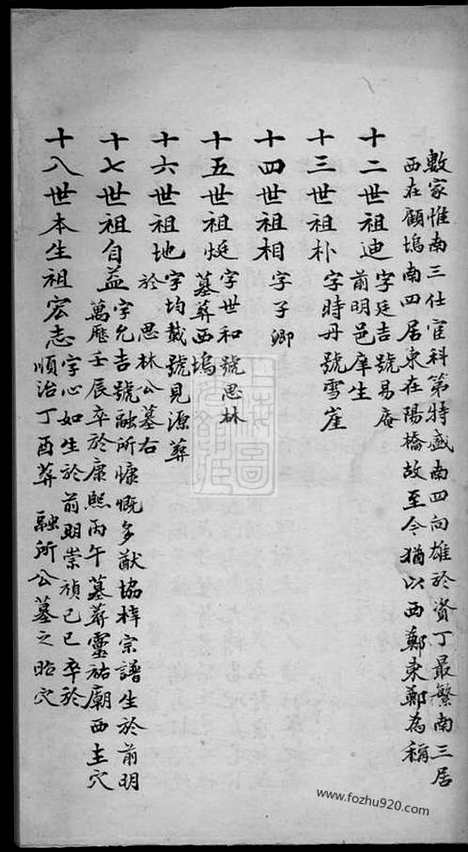 數家惟南三仕宦科第特盛南四向雄於資丁最繁南三居
西在顧塢南四居東在陽橋故至今猶以西鄭東鄭為稱
十二世祖迪
字廷吉號易庵
前明邑庠生
十三世祖朴
字時丹號雪崖
十四世祖相
字子卿
十五世祖烶
字世和號思林
墓葬西塢
十六世祖地
字均載號見源葬
於思林公墓右
十七世祖自益
字允吉號融所慷慨多猷協梓宗譜生於前明
萬歷壬辰卒於康熙丙午墓葬靈祐廟西主穴
十八世本生祖宏志
字心如生於前明崇禎己巳卒於
順治丁酉葬融所公墓之昭穴
www.fozhu920.com